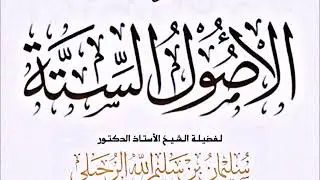 الأُصُولُ السِّتَّة
لفضيلة الشيخ الأستاذ الدكتور
سُلَيْمَان بْن سَلِيم الله الرُّحَيْلِي